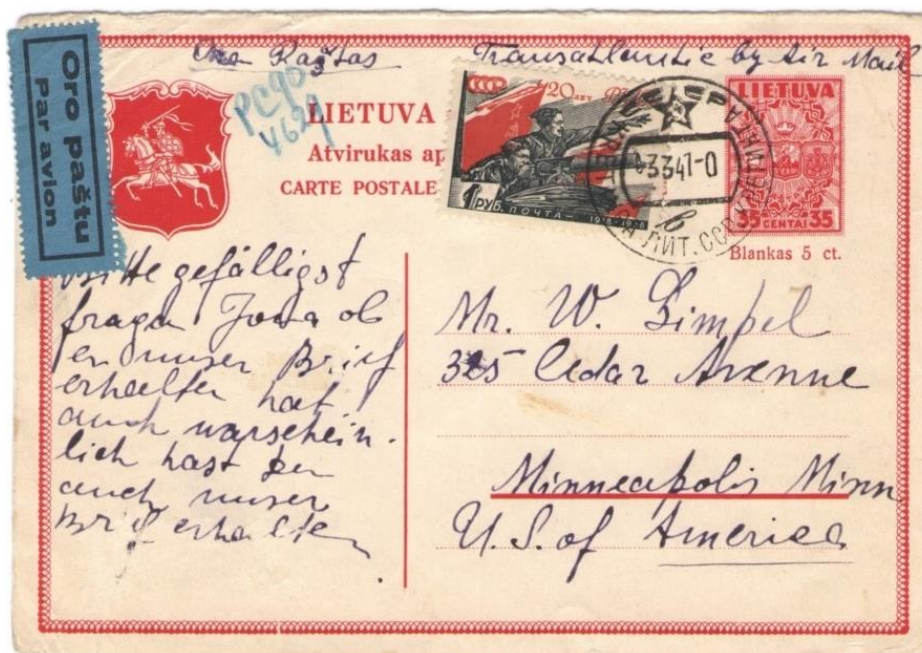 Oro paštu
par avion
Oro Paštas
Transatlantic by Air Mail
PC90
4629
LIETUVA
Atvirukas ap
CARTE POSTALE
СССР
20 ЛЕТ
1 РУБ. ПОЧТА 1918-1938
3341-0
ЛИТ. ССР
LIETUVA
35 CENTAI 35
Blankas 5 ct.
Bitte gefälligst
fragen Jona ob
er unser Brief
erhaelten hat
auch warschein-
lich hast du
auch unser
Brief erhalten
Mr. W. Gimpel
325 Cedar Avenue
Minneapolis Minn
U.S. of America